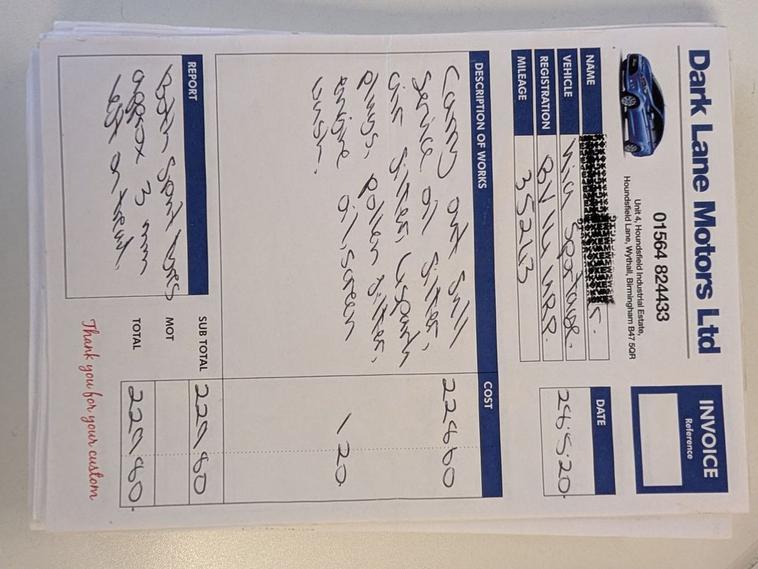 Dark Lane Motors Ltd
01564 824433
Unit 4, Houndsfield Industrial Estate,
Houndsfield Lane, Wythall, Birmingham B47 5QR
INVOICE
Reference
NAME
VEHICLE Kia Sportage.
REGISTRATION
MILEAGE 35213
DATE
28.5.20.
DESCRIPTION OF WORKS COST
Carry out full 228 60
Service oil filter,
air filter, 4 spark
plugs, pollen filter,
engine oil, screen 1 20
wash.
REPORT
Both front tyres
approx 3 mm
left on tread.
SUB TOTAL 229.80
MOT
TOTAL 229.80.
Thank you for your custom